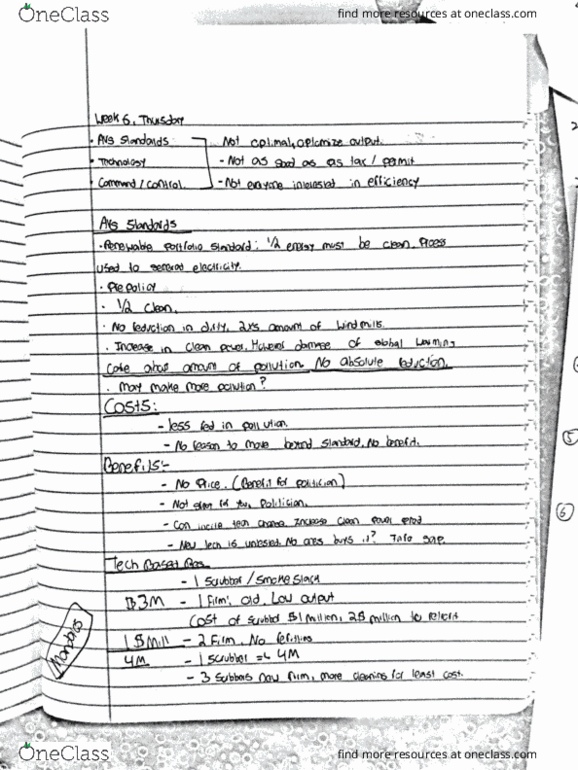 OneClass
find more resources at oneclass.com
Week 6, Thursday
• AVG Standards: Not optimal, optomize output.
• Technology - Not as good as as tax / permit
• Command / control. - Not everyone interested in efficiency
AVG Standards
• Renewable portfolio standard: 1/2 energy must be clean. Process
used to generate electricity.
• Pre policy
• 1/2 clean.
• No reduction in dirty, 2xs amount of windmills.
• Increase in clean power. damage of global warming
Care about amount of pollution. No absolute reduction.
• May make more pollution?
Costs:
- less red in pollution.
- No reason to move beyond standard. No benefit.
Benefits:-
- No Price. (Benefit for politician)
- Not Politician.
- Can incite tech change. Increase clean power prod
- New tech is untested. No ones buys it?
Tech Based
- 1 scrubber / smoke stack
$3M - 1 firm, old, low output
cost of scrubber $1 million, 2$ million to retrofit
1$ Mill - 2 Firm. No
4M - 1 scrubber = 4M
- 3 new firm, more cleaning for least cost.
Mandates
5
6
OneClass
find more resources at oneclass.com